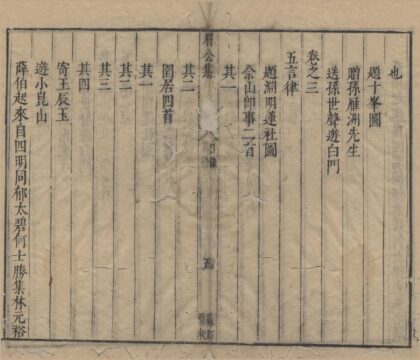 也
題十峯圖
贈孫雁洲先生
送孫世聲遊白門
卷之三
五言律
題淵明蓮社圖
佘山即事二首
其一
眉公集
目錄
五
其二
閒居四首
其一
其二
其三
其四
寄王辰玉
遊小崑山
薛伯起來自四明同郁太碧何士勝集林元裕